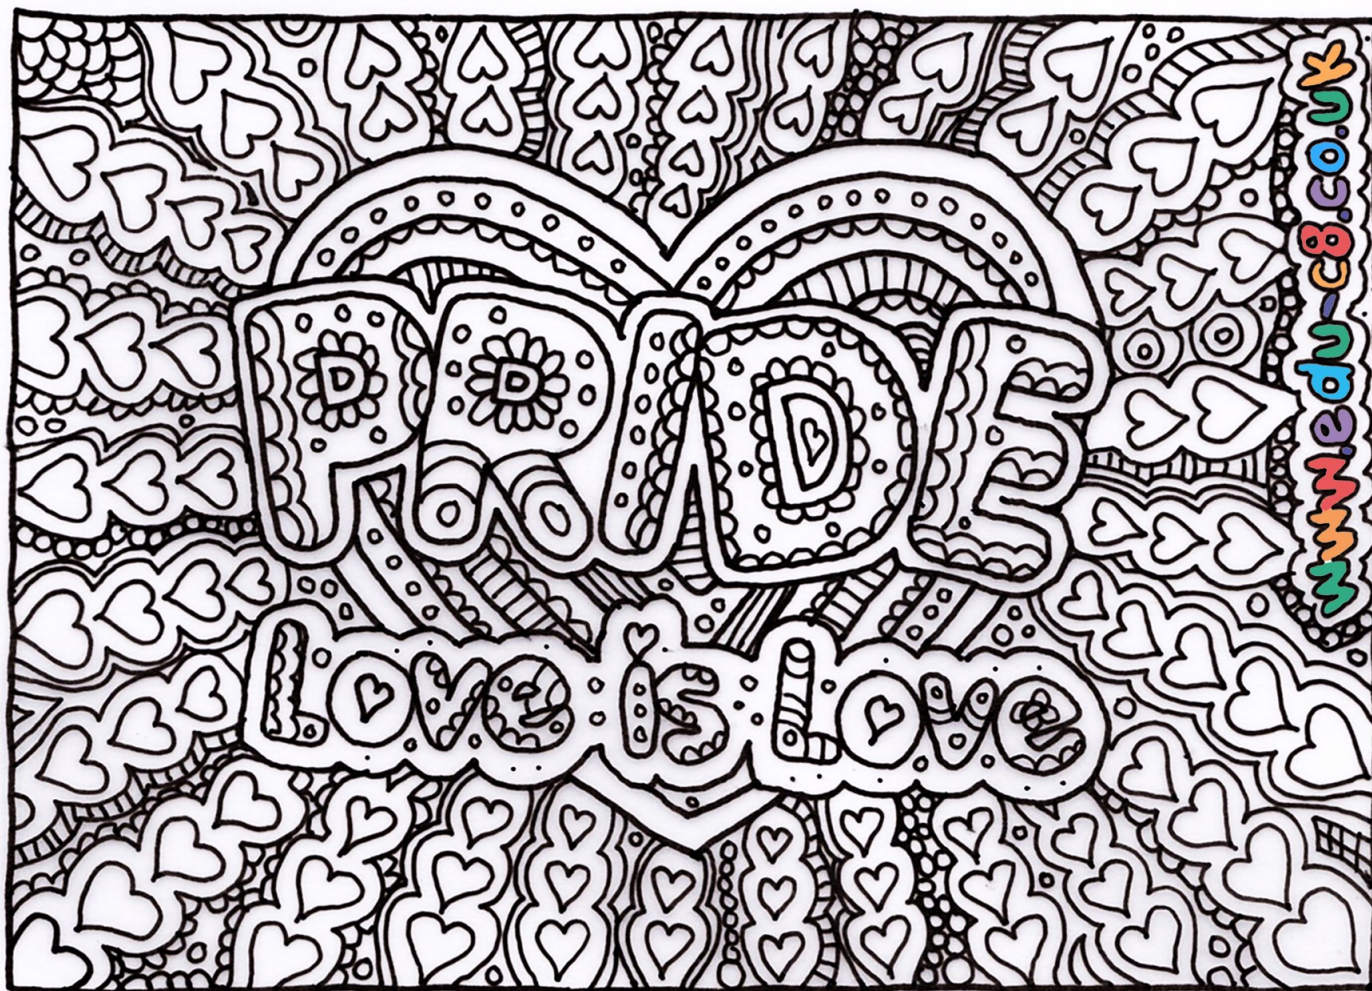 PRIDE
Love is Love
www.edu-c8.co.uk